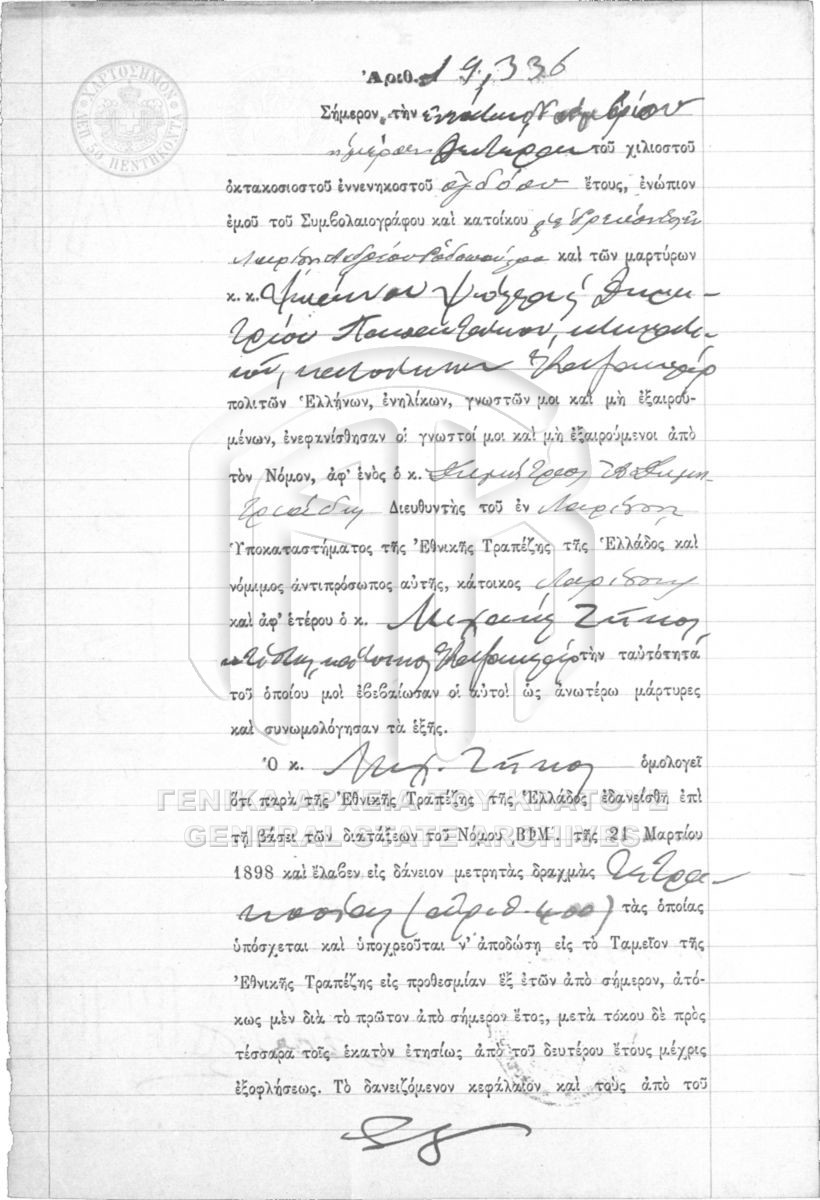 ΧΑΡΤΟΣΗΜΟΝ
ΛΕΠ. 50 ΠΕΝΤΗΚΟΝΤΑ
Ἀριθ. 19,336
Σήμερον τὴν ἐννάτην Νοεμβρίου
ἡμέραν Δευτέραν τοῦ χιλιοστοῦ
ὀκτακοσιοστοῦ ἐννενηκοστοῦ ὀγδόου ἔτους, ἐνώπιον
ἐμοῦ τοῦ Συμβολαιογράφου καὶ κατοίκου
καὶ τῶν μαρτύρων
κ. κ.
πολιτῶν Ἑλλήνων, ἐνηλίκων, γνωστῶν μοι καὶ μὴ ἐξαιρου-
μένων, ἐνεφανίσθησαν οἱ γνωστοί μοι καὶ μὴ ἐξαιρούμενοι ἀπὸ
τὸν Νόμον, ἀφ' ἑνὸς ὁ κ. Δημήτριος Δημη-
τριάδης Διευθυντὴς τοῦ ἐν Λαρίσῃ
Ὑποκαταστήματος τῆς Ἐθνικῆς Τραπέζης τῆς Ἑλλάδος καὶ
νόμιμος ἀντιπρόσωπος αὐτῆς, κάτοικος Λαρίσης
καὶ ἀφ' ἑτέρου ὁ κ.
κάτοικος τὴν ταὐτότητα
τοῦ ὁποίου μοὶ ἐβεβαίωσαν οἱ αὐτοὶ ὡς ἀνωτέρω μάρτυρες
καὶ συνωμολόγησαν τὰ ἑξῆς.
Ὁ κ. ὁμολογεῖ
ὅτι παρὰ τῆς Ἐθνικῆς Τραπέζης τῆς Ἑλλάδος ἐδανείσθη ἐπὶ
τῇ βάσει τῶν διατάξεων τοῦ Νόμου ͵ΒΦΜ΄. τῆς 21 Μαρτίου
1898 καὶ ἔλαβεν εἰς δάνειον μετρητὰς δραχμὰς Τετρα-
κοσίας (ἀριθ. 400) τὰς ὁποίας
ὑπόσχεται καὶ ὑποχρεοῦται ν' ἀποδώσῃ εἰς τὸ Ταμεῖον τῆς
Ἐθνικῆς Τραπέζης εἰς προθεσμίαν ἓξ ἐτῶν ἀπὸ σήμερον, ἀτό-
κως μὲν διὰ τὸ πρῶτον ἀπὸ σήμερον ἔτος, μετὰ τόκου δὲ πρὸς
τέσσαρα τοῖς ἑκατὸν ἐτησίως ἀπὸ τοῦ δευτέρου ἔτους μέχρις
ἐξοφλήσεως. Τὸ δανειζόμενον κεφάλαιον καὶ τοὺς ἀπὸ τοῦ
ΓΕΝΙΚΑ ΑΡΧΕΙΑ ΤΟΥ ΚΡΑΤΟΥΣ
GENERAL STATE ARCHIVES